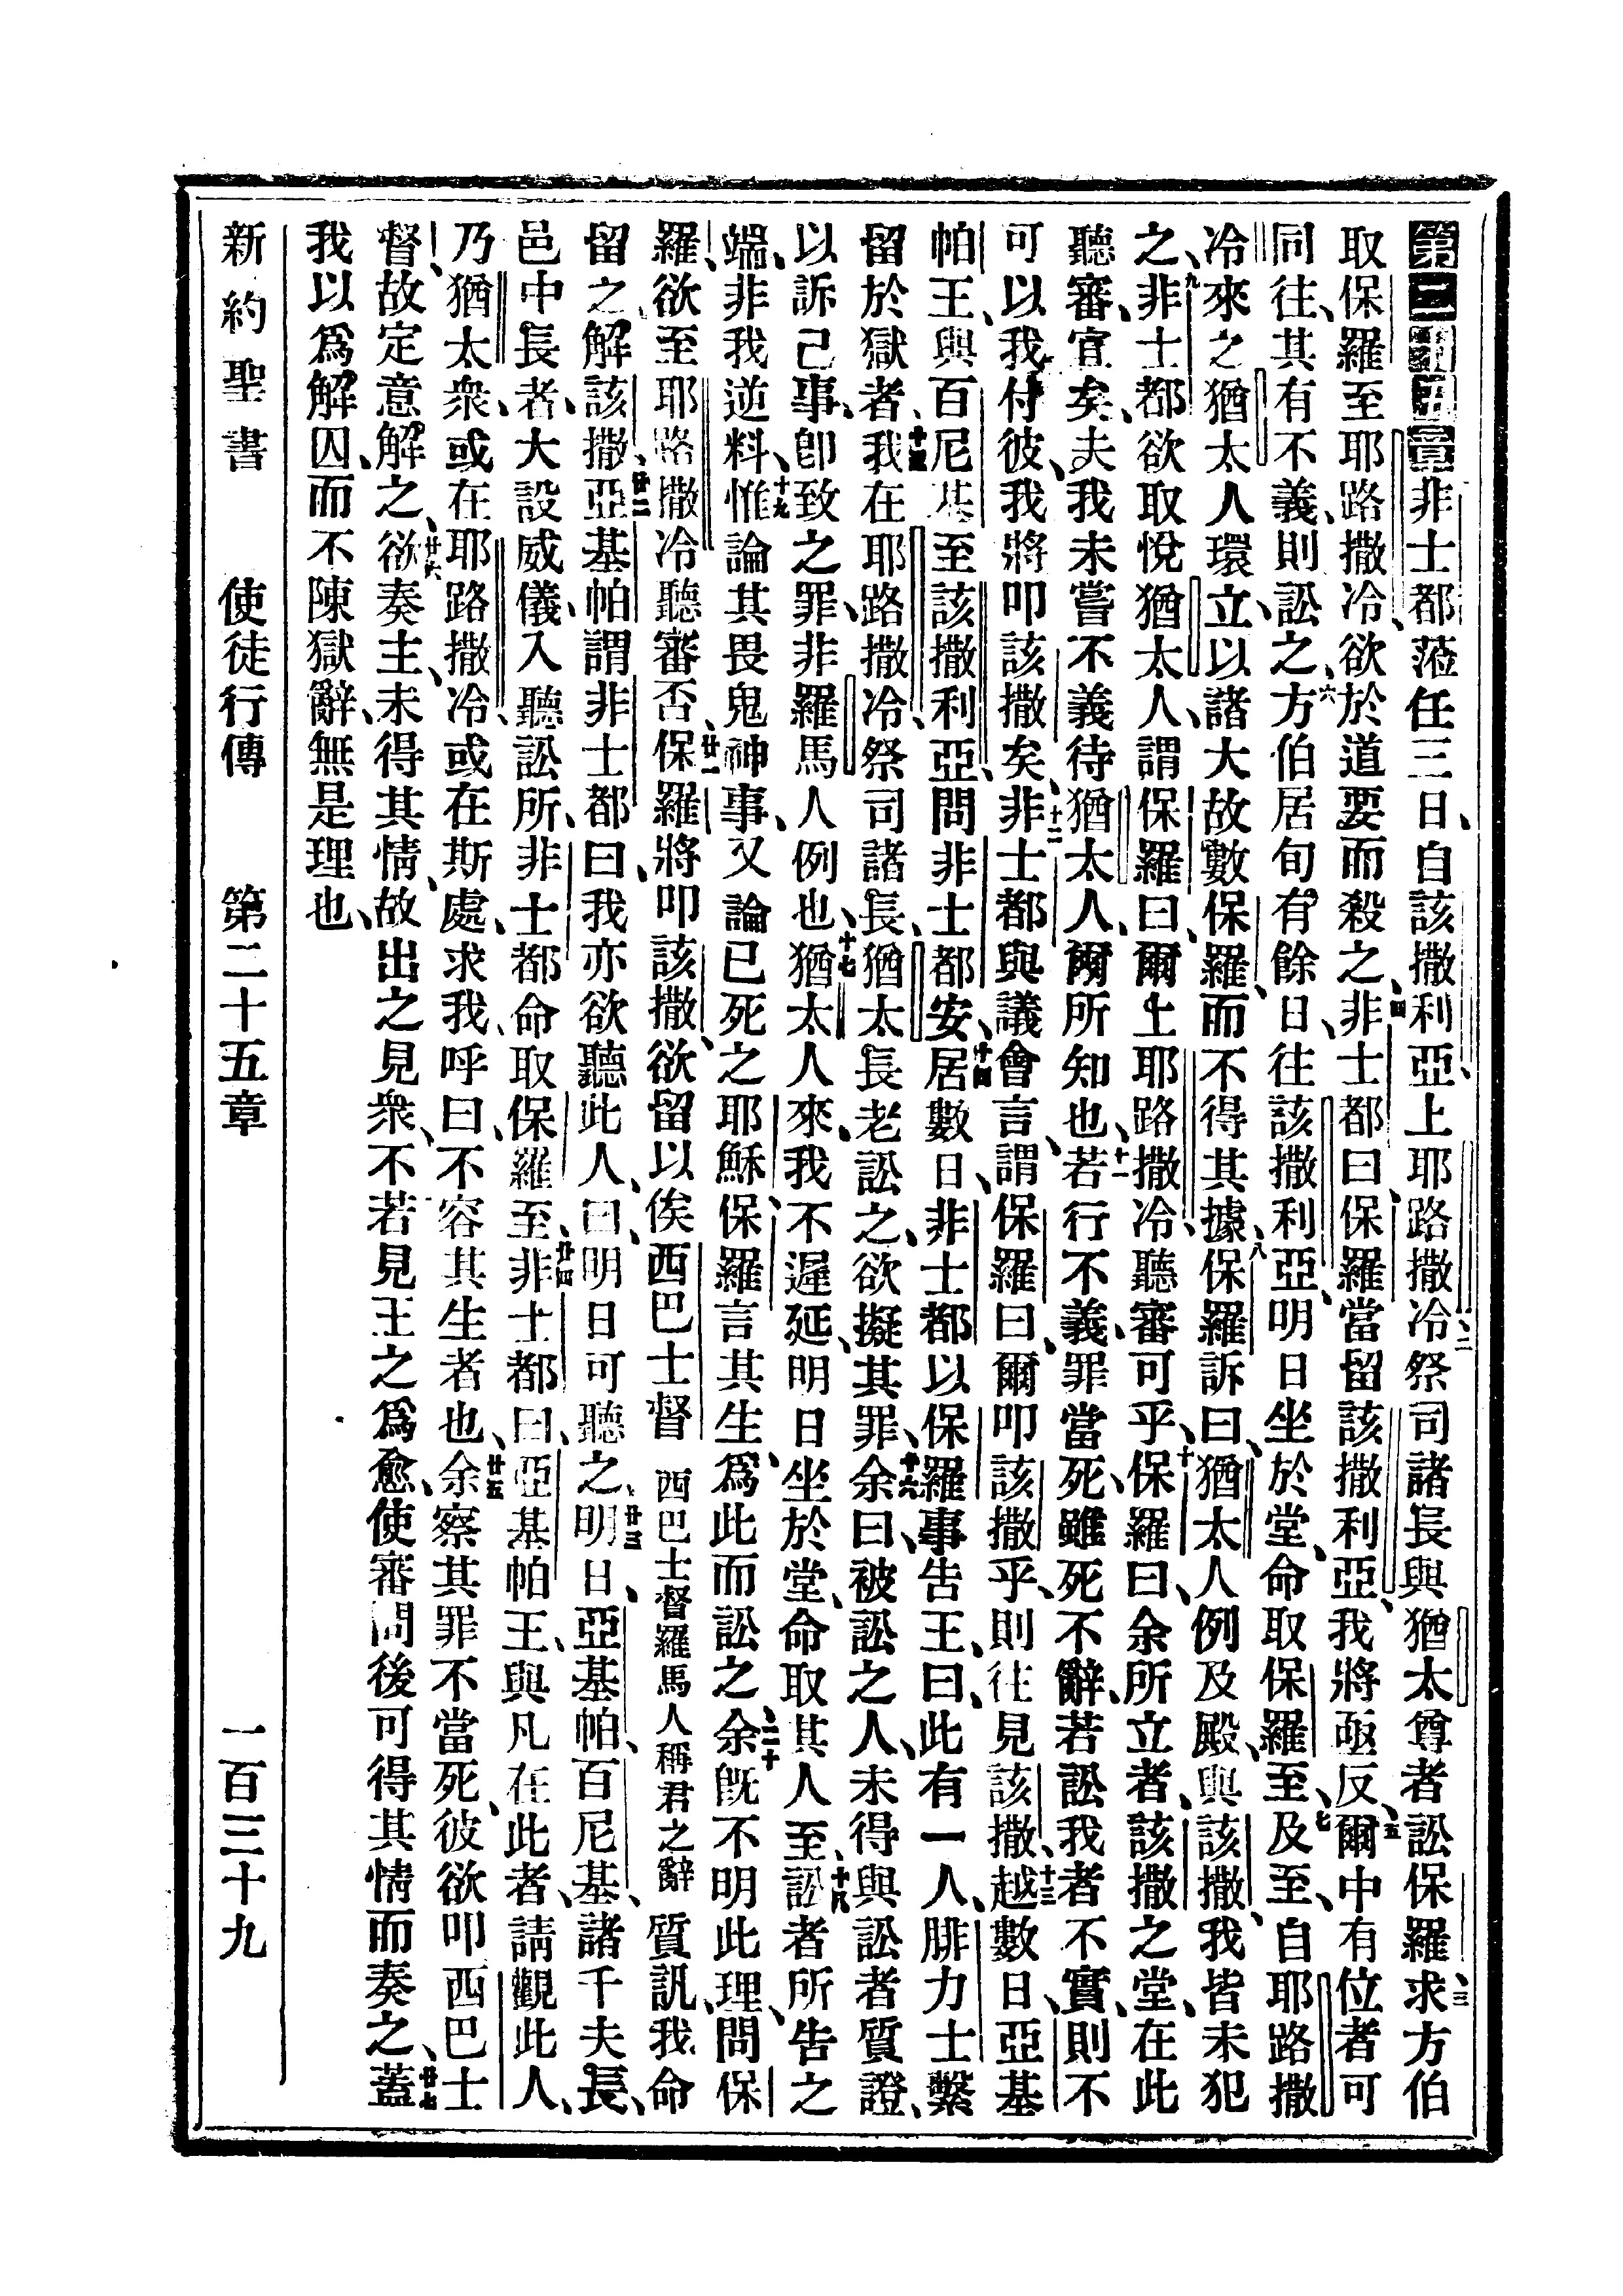 第二十五章非士都蒞任三日、自該撒利亞上耶路撒冷、二祭司諸長與猶太尊者訟保羅、三求方伯
取保羅至耶路撒冷、欲於道要而殺之、四非士都曰、保羅當留該撒利亞、我將亟反、五爾中有位者可
同往、其有不義、則訟之、六方伯居旬有餘日、往該撒利亞、明日坐於堂、命取保羅至、七及至、自耶路撒
冷來之猶太人環立、以諸大故數保羅、而不得其據、八保羅訴曰、猶太人例及殿、與該撒、我皆未犯
之、九非士都欲取悅猶太人、謂保羅曰、爾上耶路撒冷、聽審可乎、十保羅曰、余所立者、該撒之堂、在此
聽審、宜矣、夫我未嘗不義待猶太人、爾所知也、十一若行不義、罪當死、雖死不辭、若訟我者不實、則不
可以我付彼、我將叩該撒矣、十二非士都與議會言、謂保羅曰、爾叩該撒乎、則往見該撒、十三越數日、亞基
帕王、與百尼基至該撒利亞、問非士都安、十四居數日、非士都以保羅事告王、曰、此有一人、腓力士繫
留於獄者、十五我在耶路撒冷、祭司諸長、猶太長老訟之、欲擬其罪、十六余曰、被訟之人、未得與訟者質證、
以訴己事、卽致之罪、非羅馬人例也、十七猶太人來、我不遲延、明日坐於堂、命取其人至、十八訟者所告之
端、非我逆料、十九惟論其畏鬼神事、又論已死之耶穌、保羅言其生、爲此而訟之、二十余旣不明此理、問保
羅、欲至耶路撒冷聽審否、廿一保羅將叩該撒、欲留以俟西巴士督 西巴士督羅馬人稱君之辭 質訊、我命
留之、解該撒、廿二亞基帕謂非士都曰、我亦欲聽此人、曰、明日可聽之、廿三明日、亞基帕、百尼基、諸千夫長、
邑中長者、大設威儀、入聽訟所、非士都命取保羅至、廿四非士都曰、亞基帕王、與凡在此者、請觀此人、
乃猶太衆、或在耶路撒冷、或在斯處、求我、呼曰、不容其生者也、廿五余察其罪不當死、彼欲叩西巴士
督、故定意解之、廿六欲奏主、未得其情、故出之見衆、不若見王之爲愈、使審問後可得其情而奏之、廿七蓋
我以爲解囚、而不陳獄辭、無是理也、
新約聖書 使徒行傳 第二十五章 一百三十九